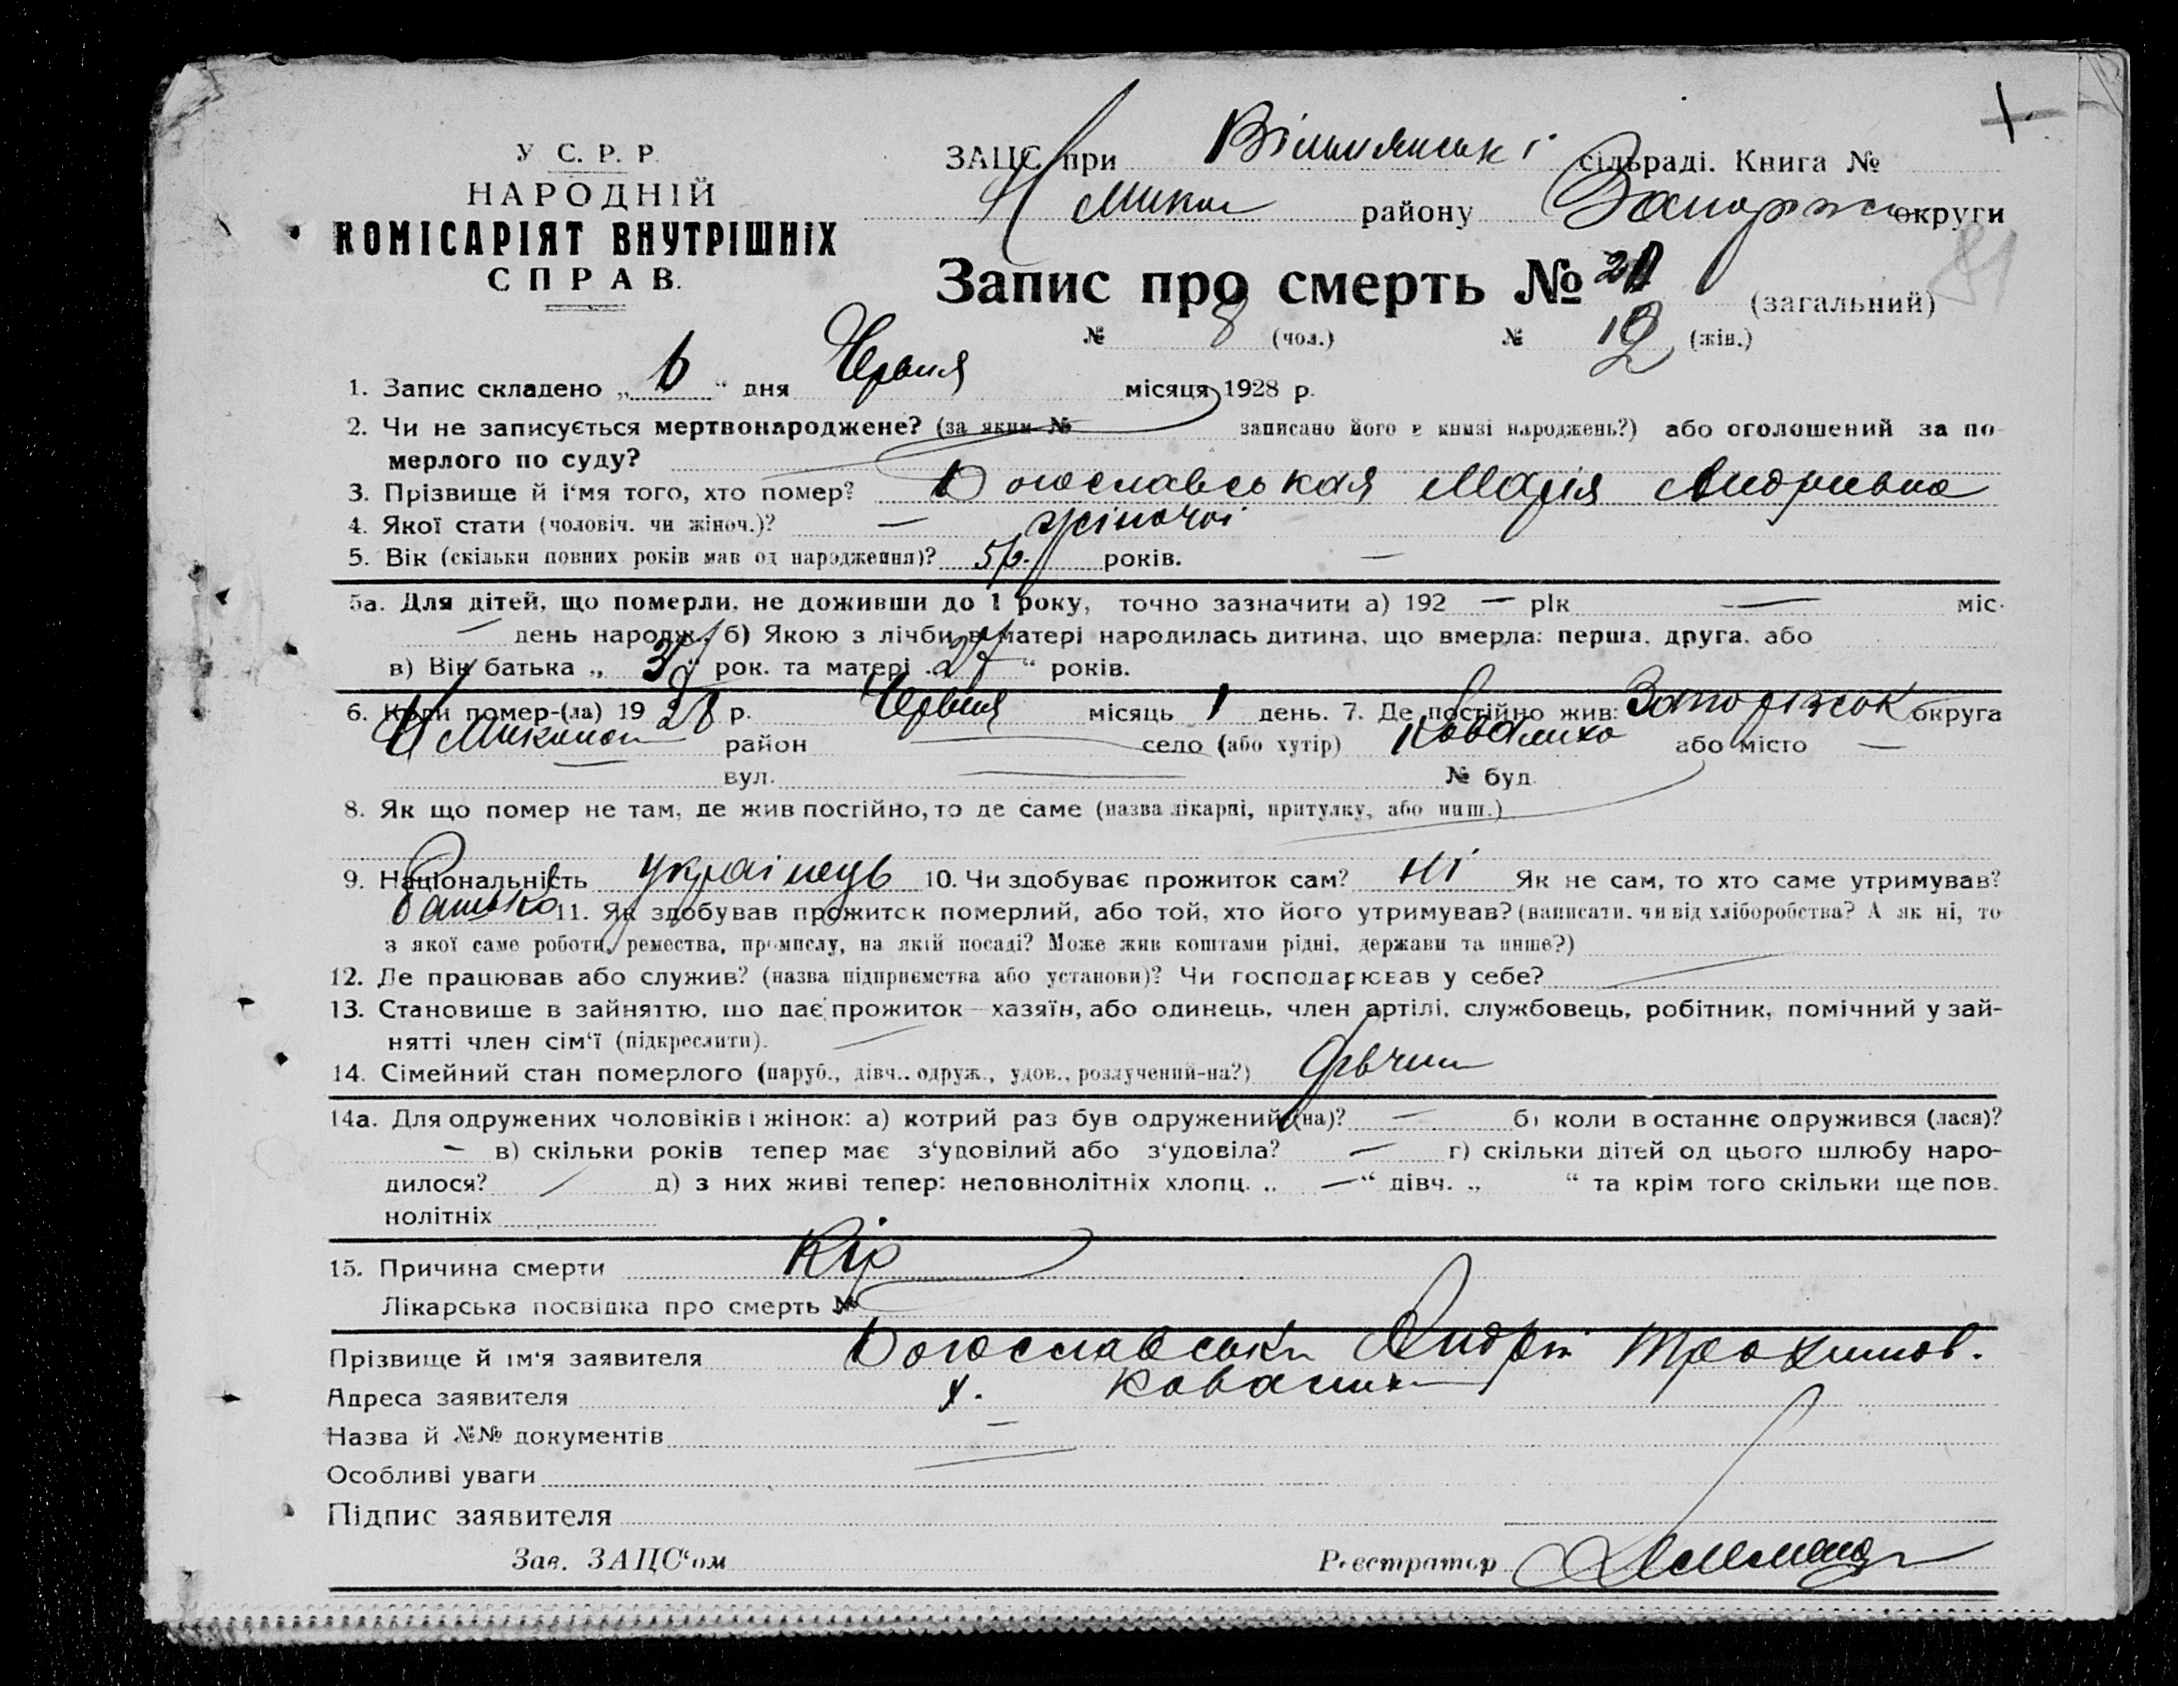 У С. Р. Р.
НАРОДНІЙ
КОМІСАРІЯТ ВНУТРІШНІХ
СПРАВ.
ЗАЦС при сільраді. Книга №
району округи
Запис про смерть № (загальний)
№ 8 (чол.) № (жін.)
1. Запис складено „ 6 “ дня Червня місяця 1928 р.
2. Чи не записується мертвонароджене? (за яким № записано його в книзі народжень?) або оголошений за по-
мерлого по суду?
3. Прізвище й і‘мя того, хто помер? Богославськая Марія Андриевна
4. Якої стати (чоловіч. чи жіноч.)? — жіночоі
5. Вік (скільки повних років мав од народження)? 5 р. років. —
5а. Для дітей, що померли, не доживши до 1 року, точно зазначити а) 192 — рік — міс.
— день народж. б) Якою з лічби в матері народилась дитина, що вмерла: перша, друга, або
в) Вік батька „ “ рок. та матері „ 27 “ років.
6. Коли помер-(ла) 1928 р. Червня місяць 1 день. 7. Де постійно жив: Запоріжск округа
район — село (або хутір) або місто —
— вул. — № буд.
8. Як що помер не там, де жив постійно, то де саме (назва лікарні, притулку, або инш.)
9. Національність українець 10. Чи здобуває прожиток сам? Ні Як не сам, то хто саме утримував?
батько 11. Як здобував прожиток померлий, або той, хто його утримував? (написати, чи від хліборобства? А як ні, то
з якої саме роботи, ремества, промислу, на якій посаді? Може жив коштами рідні, держави та инше?)
12. Де працював або служив? (назва підприємства або установи)? Чи господарював у себе?
13. Становище в зайняттю, що дає прожиток—хазяїн, або одинець, член артілі, службовець, робітник, помічний у зай-
нятті член сім‘ї (підкреслити).
14. Сімейний стан померлого (паруб., дівч., одруж., удов., розлучений-на?)
14а. Для одружених чоловіків і жінок: а) котрий раз був одружений (на)? — б) коли востаннє одружився (лася)?
— в) скільки років тепер має з‘удовілий або з‘удовіла? — г) скільки дітей од цього шлюбу наро-
дилося? д) з них живі тепер: неповнолітніх хлопц. „ — “ дівч. „ “ та крім того скільки ще пов.
нолітніх
15. Причина смерти Кір
Лікарська посвідка про смерть №
Прізвище й ім‘я заявителя Богославськи Андрій Трохимов.
Адреса заявителя х.
Назва й №№ документів —
Особливі уваги
Підпис заявителя
Зав. ЗАЦС‘ом Реєстратор